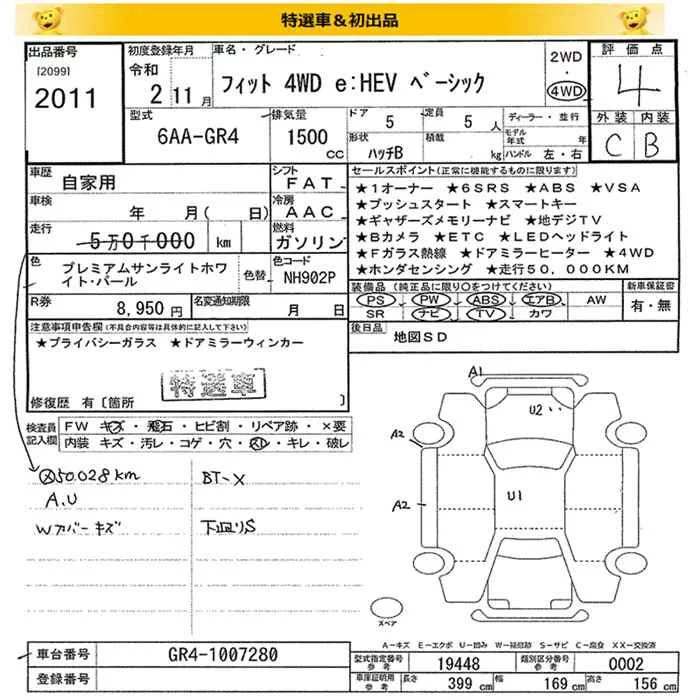 特選車＆初出品
出品番号 初度登録年月 車名・グレード 2WD 評価点
[2099] 令和 ・
2011 2 11月 フィット 4WD e:HEV ベーシック 4WD 4
型式 排気量 ドア 5 定員 5人 ディーラー・並行 外装 内装
6AA-GR4 1500 CC 形状 ハッチB 積載 kg モデル年式 年 C B
ハンドル 左・右
車歴 自家用 シフト FAT セールスポイント(正常に機能するものに限ります)
車検 年 月( 日) 冷房 AAC ★1オーナー ★6SRS ★ABS ★VSA
★プッシュスタート ★スマートキー
走行 5万0千000 km 燃料 ガソリン ★ギャザーズメモリーナビ ★地デジTV
★Bカメラ ★ETC ★LEDヘッドライト
色 プレミアムサンライトホワイト・パール 色替 色コード NH902P ★Fガラス熱線 ★ドアミラーヒーター ★4WD
★ホンダセンシング ★走行50,000KM
R券 8,950円 名変通知期限 月 日 装備品 (純正品に限り○をつけてください) 新車保証書
PS PW ABS エアB AW 有・無
SR ナビ TV カワ
注意事項申告欄(不具合内容等は具体的に記入して下さい) 後日品 地図SD
★プライバシーガラス ★ドアミラーウィンカー
特選車
修復歴 有〔箇所 〕
検査員記入欄 FW キズ・飛石・ヒビ割・リペア跡・×要
内装 キズ・汚レ・コゲ・穴・スレ・キレ・破レ
50.028km BT-X
A.U
Wカバーキズ 下廻りS
A1
U2
A2
A2
U1
スペア
A－キズ E－エクボ U－凹み W－板修跡 S－サビ C－腐食 XX－交換済
車台番号 GR4-1007280 型式指定番号参考 19448 類別区分番号参考 0002
登録番号 車庫証明用参考 長さ 399cm 幅 169cm 高さ 156cm